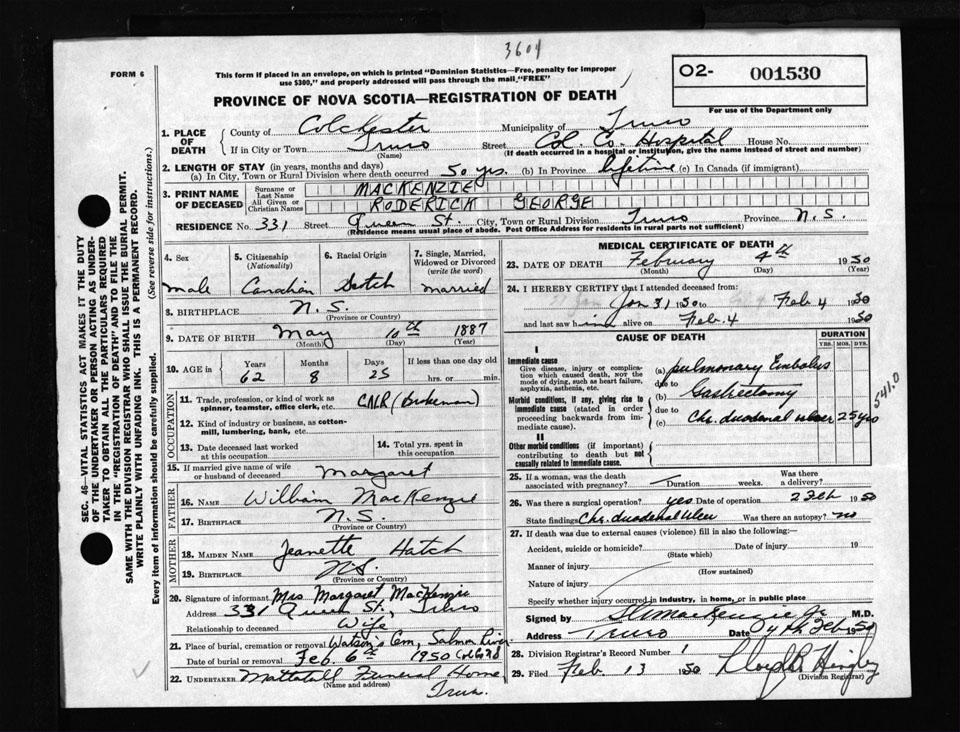 3604
FORM 6
This form if placed in an envelope, on which is printed "Dominion Statistics—Free, penalty for improper
use $300," and properly addressed will pass through the mail "FREE"
O2- 001530
For use of the Department only
PROVINCE OF NOVA SCOTIA—REGISTRATION OF DEATH
1. PLACE OF DEATH
County of Colchester Municipality of Truro
If in City or Town Truro (Name) Street Col. Co. Hospital House No.
(If death occurred in a hospital or institution, give the name instead of street and number)
2. LENGTH OF STAY (in years, months and days)
(a) In City, Town or Rural Division where death occurred 50 yrs. (b) In Province lifetime (c) In Canada (if immigrant)
3. PRINT NAME OF DECEASED
Surname or Last Name MACKENZIE
All Given or Christian Names RODERICK GEORGE
RESIDENCE No. 331 Street Queen St. City, Town or Rural Division Truro Province N.S.
(Residence means usual place of abode. Post Office Address for residents in rural parts not sufficient)
4. Sex
male
5. Citizenship (Nationality)
Canadian
6. Racial Origin
Scotch
7. Single, Married, Widowed or Divorced (write the word)
married
8. BIRTHPLACE N.S.
(Province or Country)
9. DATE OF BIRTH May 10th 1887
(Month) (Day) (Year)
10. AGE in Years Months Days If less than one day old
62 8 25 hrs. or min.
OCCUPATION
11. Trade, profession or kind of work as spinner, teamster, office clerk, etc. CNR (Brakeman)
12. Kind of industry or business, as cotton-mill, lumbering, bank, etc.
13. Date deceased last worked at this occupation
14. Total yrs. spent in this occupation
15. If married give name of wife or husband of deceased Margaret
FATHER
16. NAME William MacKenzie
17. BIRTHPLACE N.S.
(Province or Country)
MOTHER
18. MAIDEN NAME Jeanette Hatch
19. BIRTHPLACE N.S.
(Province or Country)
20. Signature of informant Mrs Margaret MacKenzie
Address 331 Queen St., Truro
Relationship to deceased Wife
21. Place of burial, cremation or removal Watson's Cem, Salmon River
Date of burial or removal Feb. 6th 1950 Col Co NS
22. UNDERTAKER Mattatall Funeral Home
(Name and address)
Truro.
MEDICAL CERTIFICATE OF DEATH
23. DATE OF DEATH February 4th 1950
(Month) (Day) (Year)
24. I HEREBY CERTIFY that I attended deceased from:
Jan 31 1950 to Feb 4 1950
and last saw him alive on Feb. 4 1950
CAUSE OF DEATH
DURATION
YRS. MOS. DYS.
I
Immediate cause
Give disease, injury or complication which caused death, not the mode of dying, such as heart failure, asphyxia, asthenia, etc.
(a) pulmonary Embolus
due to
Morbid conditions, if any, giving rise to immediate cause (stated in order proceeding backwards from immediate cause).
(b) Gastrectomy
due to
(c) Chr. duodenal ulcer 25 yrs
541.0
II
Other morbid conditions (if important) contributing to death but not causally related to immediate cause.
25. If a woman, was the death associated with pregnancy? Duration weeks. Was there a delivery?
26. Was there a surgical operation? yes Date of operation 2 Feb 1950
State findings Chr. duodenal Ulcer Was there an autopsy? no
27. If death was due to external causes (violence) fill in also the following:
Accident, suicide or homicide? Date of injury 19
(State which)
Manner of injury
(How sustained)
Nature of injury
Specify whether injury occurred in industry, in home, or in public place
Signed by MacKenzie Jr M.D.
Address Truro Date 4th Feb 1950
28. Division Registrar's Record Number 1
29. Filed Feb. 13 1950 Lloyd B Hingley
(Division Registrar)
SEC. 46—VITAL STATISTICS ACT MAKES IT THE DUTY
OF THE UNDERTAKER OR PERSON ACTING AS UNDER-
TAKER TO OBTAIN ALL THE PARTICULARS REQUIRED
IN THE "REGISTRATION OF DEATH" AND TO FILE THE
SAME WITH THE DIVISION REGISTRAR WHO SHALL ISSUE THE BURIAL PERMIT.
WRITE PLAINLY WITH UNFADING INK. THIS IS A PERMANENT RECORD.
Every item of information should be carefully supplied. (See reverse side for instructions.)